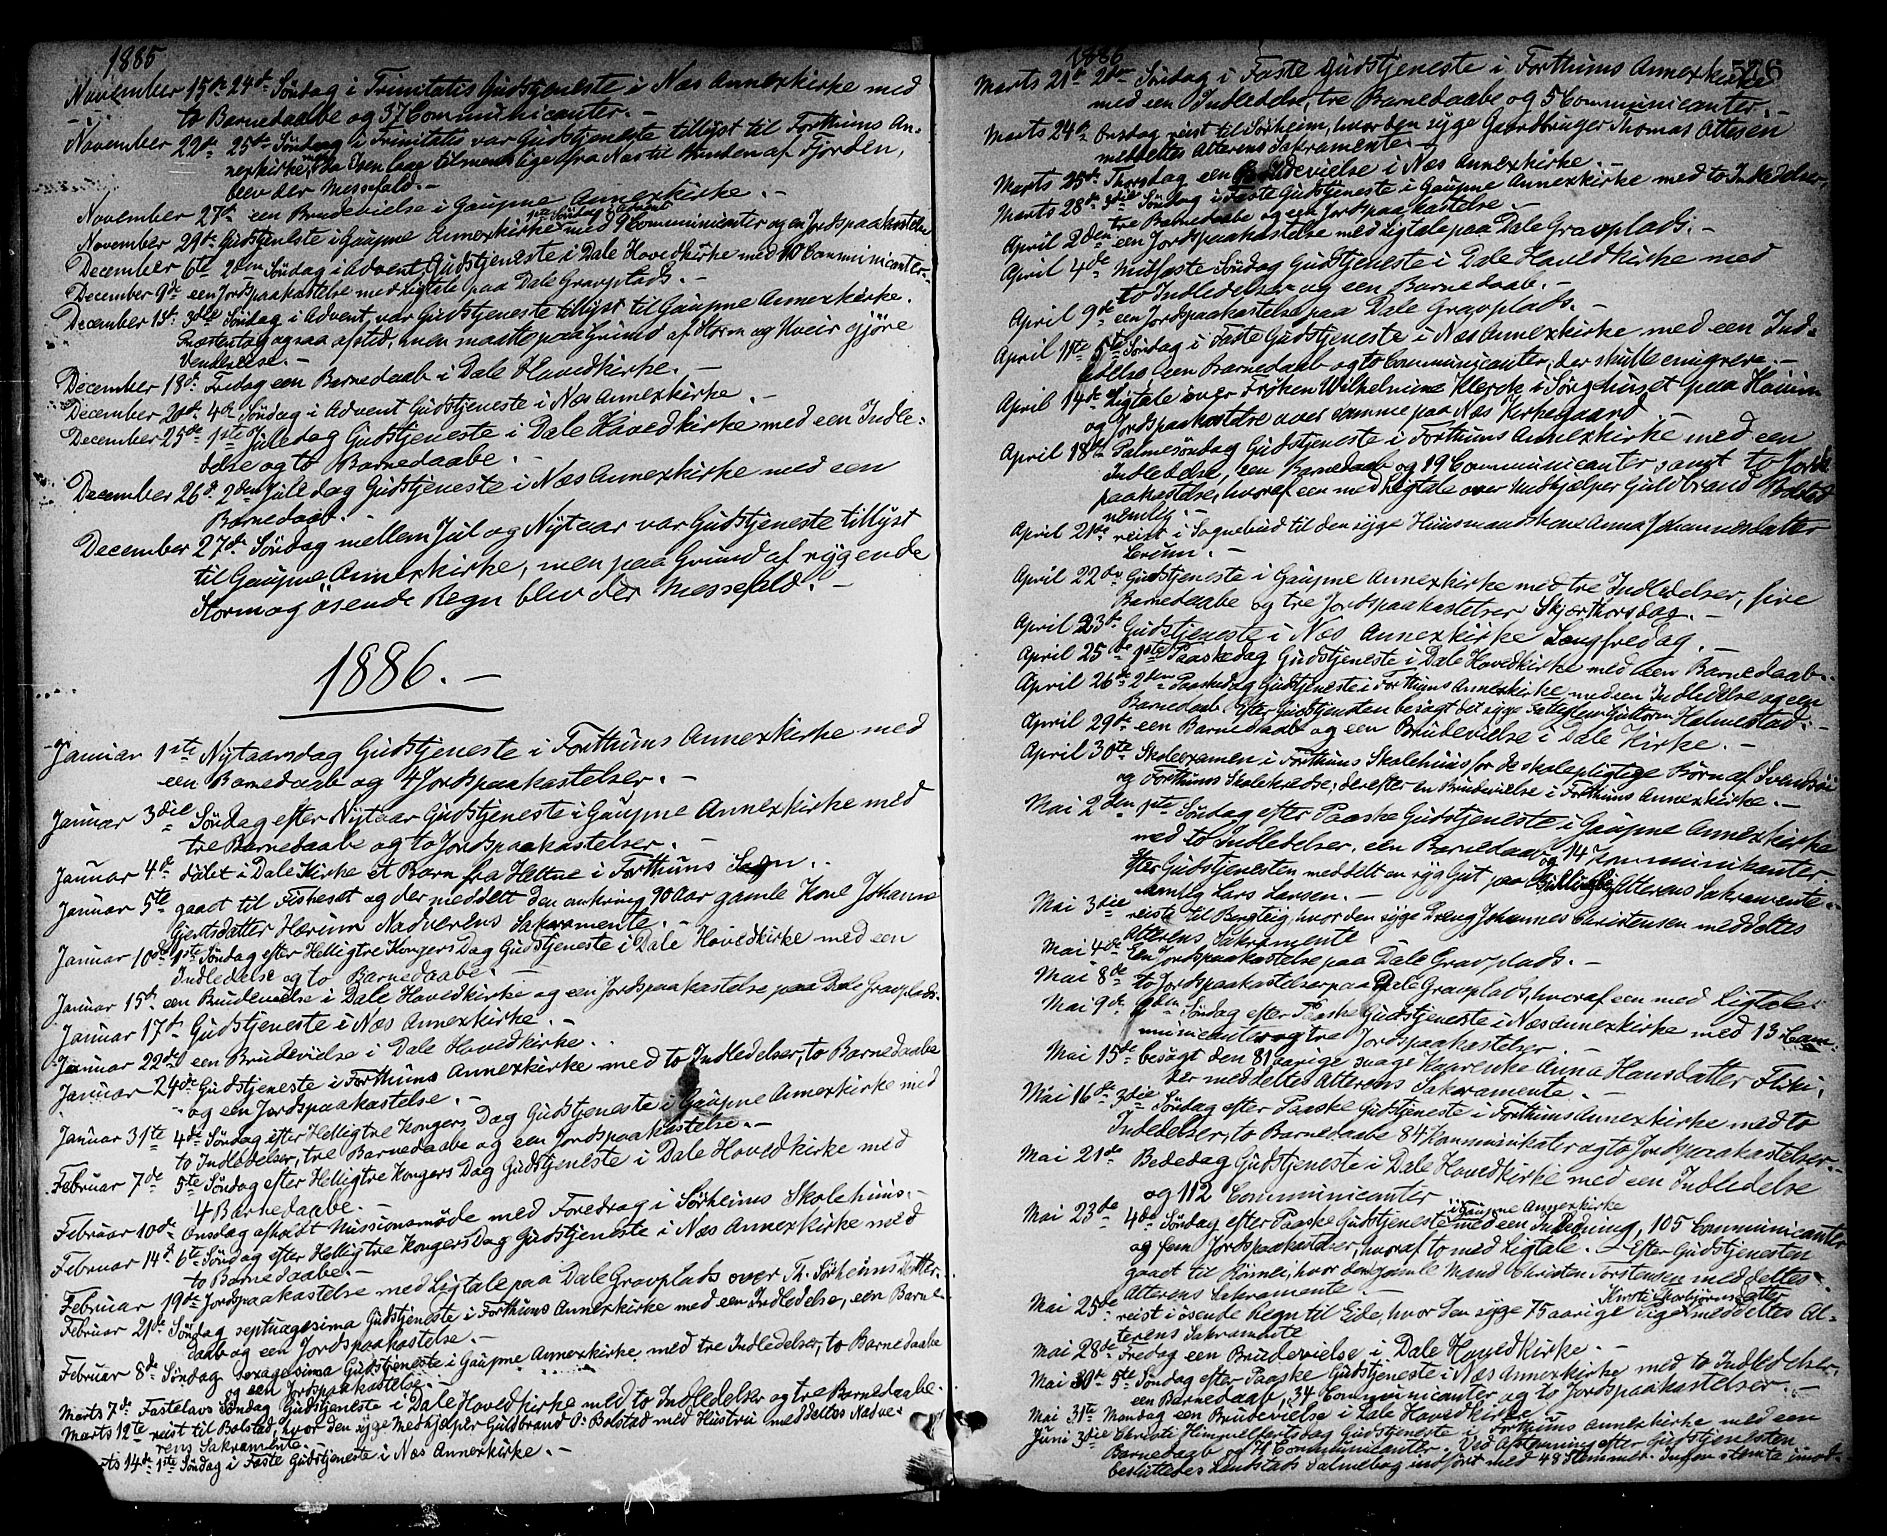 1885
November 15de 24de Søndag i Trinitatis Gudstjeneste i Næs Annexkirke med
to Barnedaabe og 37 Communicanter.-
November 22de 25de Søndag i Trinitatis var Gudstjeneste tillyst til Forthuns An-
nexkirke, men da Isen laae tilmenslige fra Næs til Bunden af Fjorden,
blev der Messefald.-
November 27de een Brudevielse i Gaupne Annexkirke.-
1ste Søndag i Advent
November 29de Gudstjeneste i Gaupne Annexkirke med 9 Communicanter og en Jordspaakastelse
December 6te 2den Søndag i Advent Gudstjeneste i Dale Hovedkirke med 10 Communicanter.-
December 9de een Jordspaakastelse med Ligtale paa Dale Gravplads.-
December 13de 3die Søndag i Advent var Gudstjeneste tillyst til Gaupne Annexkirke.
Præsten tog ogsaa afsted, men maatte paa Grund af Storm og Uveir gjøre
Vendereise.-
December 18de Fredag een Barnedaab i Dale Hovedkirke.-
December 20de 4de Søndag i Advent Gudstjeneste i Næs Annexkirke.-
December 25de 1ste Juledag Gudstjeneste i Dale Hovedkirke med een Indle-
delse og to Barnedaabe.-
December 26de 2den Juledag Gudstjeneste i Næs Annexkirke med een
Barnedaab.-
December 27de Søndag mellem Jul og Nytaar var Gudstjeneste tillyst
til Gaupne Annexkirke, men paa Grund af rygende
Storm og øsende Regn blev der Messefald.-
1886.-
Januar 1ste Nytaarsdag Gudstjeneste i Forthuns Annexkirke med
een Barnedaab og 4 Jordspaakastelser.-
Januar 3die Søndag efter Nytaar Gudstjeneste i Gaupne Annexkirke med
tre Barnedaabe og to Jordspaakastelser.-
Januar 4de døbt i Dale Kirke et Barn fra Heltne i Forthuns Sogn.-
Januar 5te gaaet til Fisheset og der meddelt den omkring 90 Aar gamle Kone Johanne
Gjertsdatter Hærum Nadverens Sakramente.-
Januar 10de 1ste Søndag efter Helligtre Kongers Dag Gudstjeneste i Dale Hovedkirke med een
Indledelse og to Barnedaabe.-
Januar 15de een Brudevielse i Dale Hovedkirke og een Jordspaakastelse paa Dale Gravplads.
Januar 17de Gudstjeneste i Næs Annexkirke.-
Januar 22de een Brudevielse i Dale Hovedkirke.-
Januar 24de Gudstjeneste i Forthuns Annexkirke med to Indledelser, to Barnedaabe
og een Jordspaakastelse.-
Januar 31te 4de Søndag efter Helligtre Kongers Dag Gudstjeneste i Gaupne Annexkirke med
to Indledelser, tre Barnedaabe og een Jordspaakastelse.-
Februar 7de 5te Søndag efter Helligtre Kongers Dag Gudstjeneste i Dale Hovedkirke med
4 Barnedaabe.-
Februar 10de Onsdag afholdt Missionsmøde med Foredrag i Sørheims Skolehuus.-
Februar 14de 6te Søndag efter Helligtre Kongers Dag Gudstjeneste i Næs Annexkirke med
to Barnedaabe.-
Februar 19de Jordspaakastelse med Ligtale paa Dale Gravplads over Th. Sørheims Datter.
Februar 21de Søndag septuagesima Gudstjeneste i Forthuns Annexkirke med een Indledelse, een Barne-
daab og een Jordspaakastelse.-
Februar 8de Søndag sexagesima Gudstjeneste i Gaupne Annexkirke med tre Indledelser, to Barnedaabe
og een Jordspaakastelse.-
Marts 7de Fastelavns Søndag Gudstjeneste i Dale Hovedkirke med to Indledelser og tre Barnedaabe.
Marts 12te reist til Bolstad, hvor den syge Medhjælper Guldbrand O. Bolstad med Hustru meddeltes Nadve-
rens Sakramente.-
Marts 14de 1ste Søndag i Faste Gudstjeneste i Næs Annexkirke.-
1886
576
Marts 21de 2den Søndag i Faste Gudstjeneste i Forthuns Annexkirke
med een Indledelse, tre Barnedaabe og 5 Communicanter.-
Marts 24de Onsdag reist til Sørheim, hvor den syge Gaardbruger Thomas Ottesen
meddeltes Alterens Sakramente.-
Marts 25de Thorsdag een Brudevielse i Næs Annexkirke.-
Marts 28de 3die Søndag i Faste Gudstjeneste i Gaupne Annexkirke med to Indledelser,
tre Barnedaabe og een Jordspaakastelse.-
April 2den een Jordspaakastelse med Ligtale paa Dale Gravplads.-
April 4de Midfaste Søndag Gudstjeneste i Dale Hovedkirke med
to Indledelser og een Barnedaab.-
April 9de een Jordspaakastelse paa Dale Gravplads.-
April 11te 5te Søndag i Faste Gudstjeneste i Næs Annexkirke med een Ind-
ledelse, een Barnedaab og to Communicanter, der skulle emigrere.-
April 14de Ligtale over Frøken Wilhelmine Klerck i Sørgehuset paa Høium
og Jordspaakastelse over samme paa Næs Kirkegaard
April 18de Palmesøndag Gudstjeneste i Forthuns Annexkirke med een
Indledelse, een Barnedaab og 19 Communicanter, samt to Jords-
paakastelser, hvoraf een med Ligtale over Medhjælper Guldbrand Bolstad
nemlig.-
April 21de reist i Sognebud til den syge Huusmandskone Anna Johannesdatter
Lerum.-
April 22de Gudstjeneste i Gaupne Annexkirke med tre Indledelser, fire
Barnedaabe og tre Jordspaakastelser Skjærthorsdag.-
April 23de Gudstjeneste i Næs Annexkirke Langfredag.-
April 25de 1ste Paaskedag Gudstjeneste i Dale Hovedkirke med een Barnedaab.
April 26de 2den Paaskedag Gudstjeneste i Forthuns Annexkirke med een Indledelse og een
Barnedaab. Efter Gudstjenesten besøgt det syge Fattiglem Guttorm Halmestad.
April 29de een Barnedaab og een Brudevielse i Dale Kirke.-
April 30te Skoleexamen i Forthuns Skolehuus for de skolepligtige Børn af Svendsøi
og Forthuns Skolekredse; derefter en Brudevielse i Forthuns Annexkirke.-
Mai 2den 1ste Søndag efter Paaske Gudstjeneste i Gaupne Annexkirke
med to Indledelser, een Barnedaab og 14 Kommunikanter.
Efter Gudstjenesten meddelt en syg Gut paa Alterens Sakramente,
nemlig Lars Larsen.-
Mai 3die reiste til Bergteig, hvor den syge Dreng Johannes Christensen meddeltes
Alterens Sakramente.
Mai 4de Een Jordspaakastelse paa Dale Gravplads.-
Mai 8de to Jordspaakastelser paa Dale Gravplads, hvoraf een med Ligtale.
Mai 9de 2den Søndag efter Paaske Gudstjeneste i Næs Annexkirke med 13 Com-
municanter og tre Jordspaakastelser.-
Mai 15de besøgt den 81 aarige svage Kaarenke Anna Hansdatter Flihi,
der meddeltes Alterens Sakramente.-
Mai 16de 3die Søndag efter Paaske Gudstjeneste i Forthuns Annexkirke med to
Indledelser, to Barnedaabe 84 Kommunikanter og to Jordspaakastelser.-
Mai 21de Bededag Gudstjeneste i Dale Hovedkirke med een Indledelse
og 112 Communicanter
Mai 23de 4de Søndag efter Paaske Gudstjeneste i Gaupne Annexkirke med een Indledning, 105 Communicanter
og fem Jordspaakastelser, hvoraf to med Ligtale.- Efter Gudstjenesten
gaaet til Rømli, hvor den gamle Mand Christen Torstensen meddeltes
Alterens Sakramente.-
Kirsti Thorbjørnsdatter
Mai 25de reist i øsende Regn til Eide, hvor den syge 75 aarige Pige meddeltes Al-
terens Sakramente
Mai 28de Fredag een Brudevielse i Dale Hovedkirke.-
Mai 30te 5te Søndag efter Paaske Gudstjeneste i Næs Annexkirke med to Indledelser,
een Barnedaab, 34 Communicanter og to Jordspaakastelser.-
Mai 31te Mandag een Brudevielse i Dale Hovedkirke.-
Juni 3die Christi Himmelfartsdag Gudstjeneste i Forthuns Annexkirke med een
Barnedaab og Communicanter. Ved Afstemning efter Gudstjenesten
besluttedes Landstads Salmebog indført med 48 Stemmer. Ingen stemte imod.